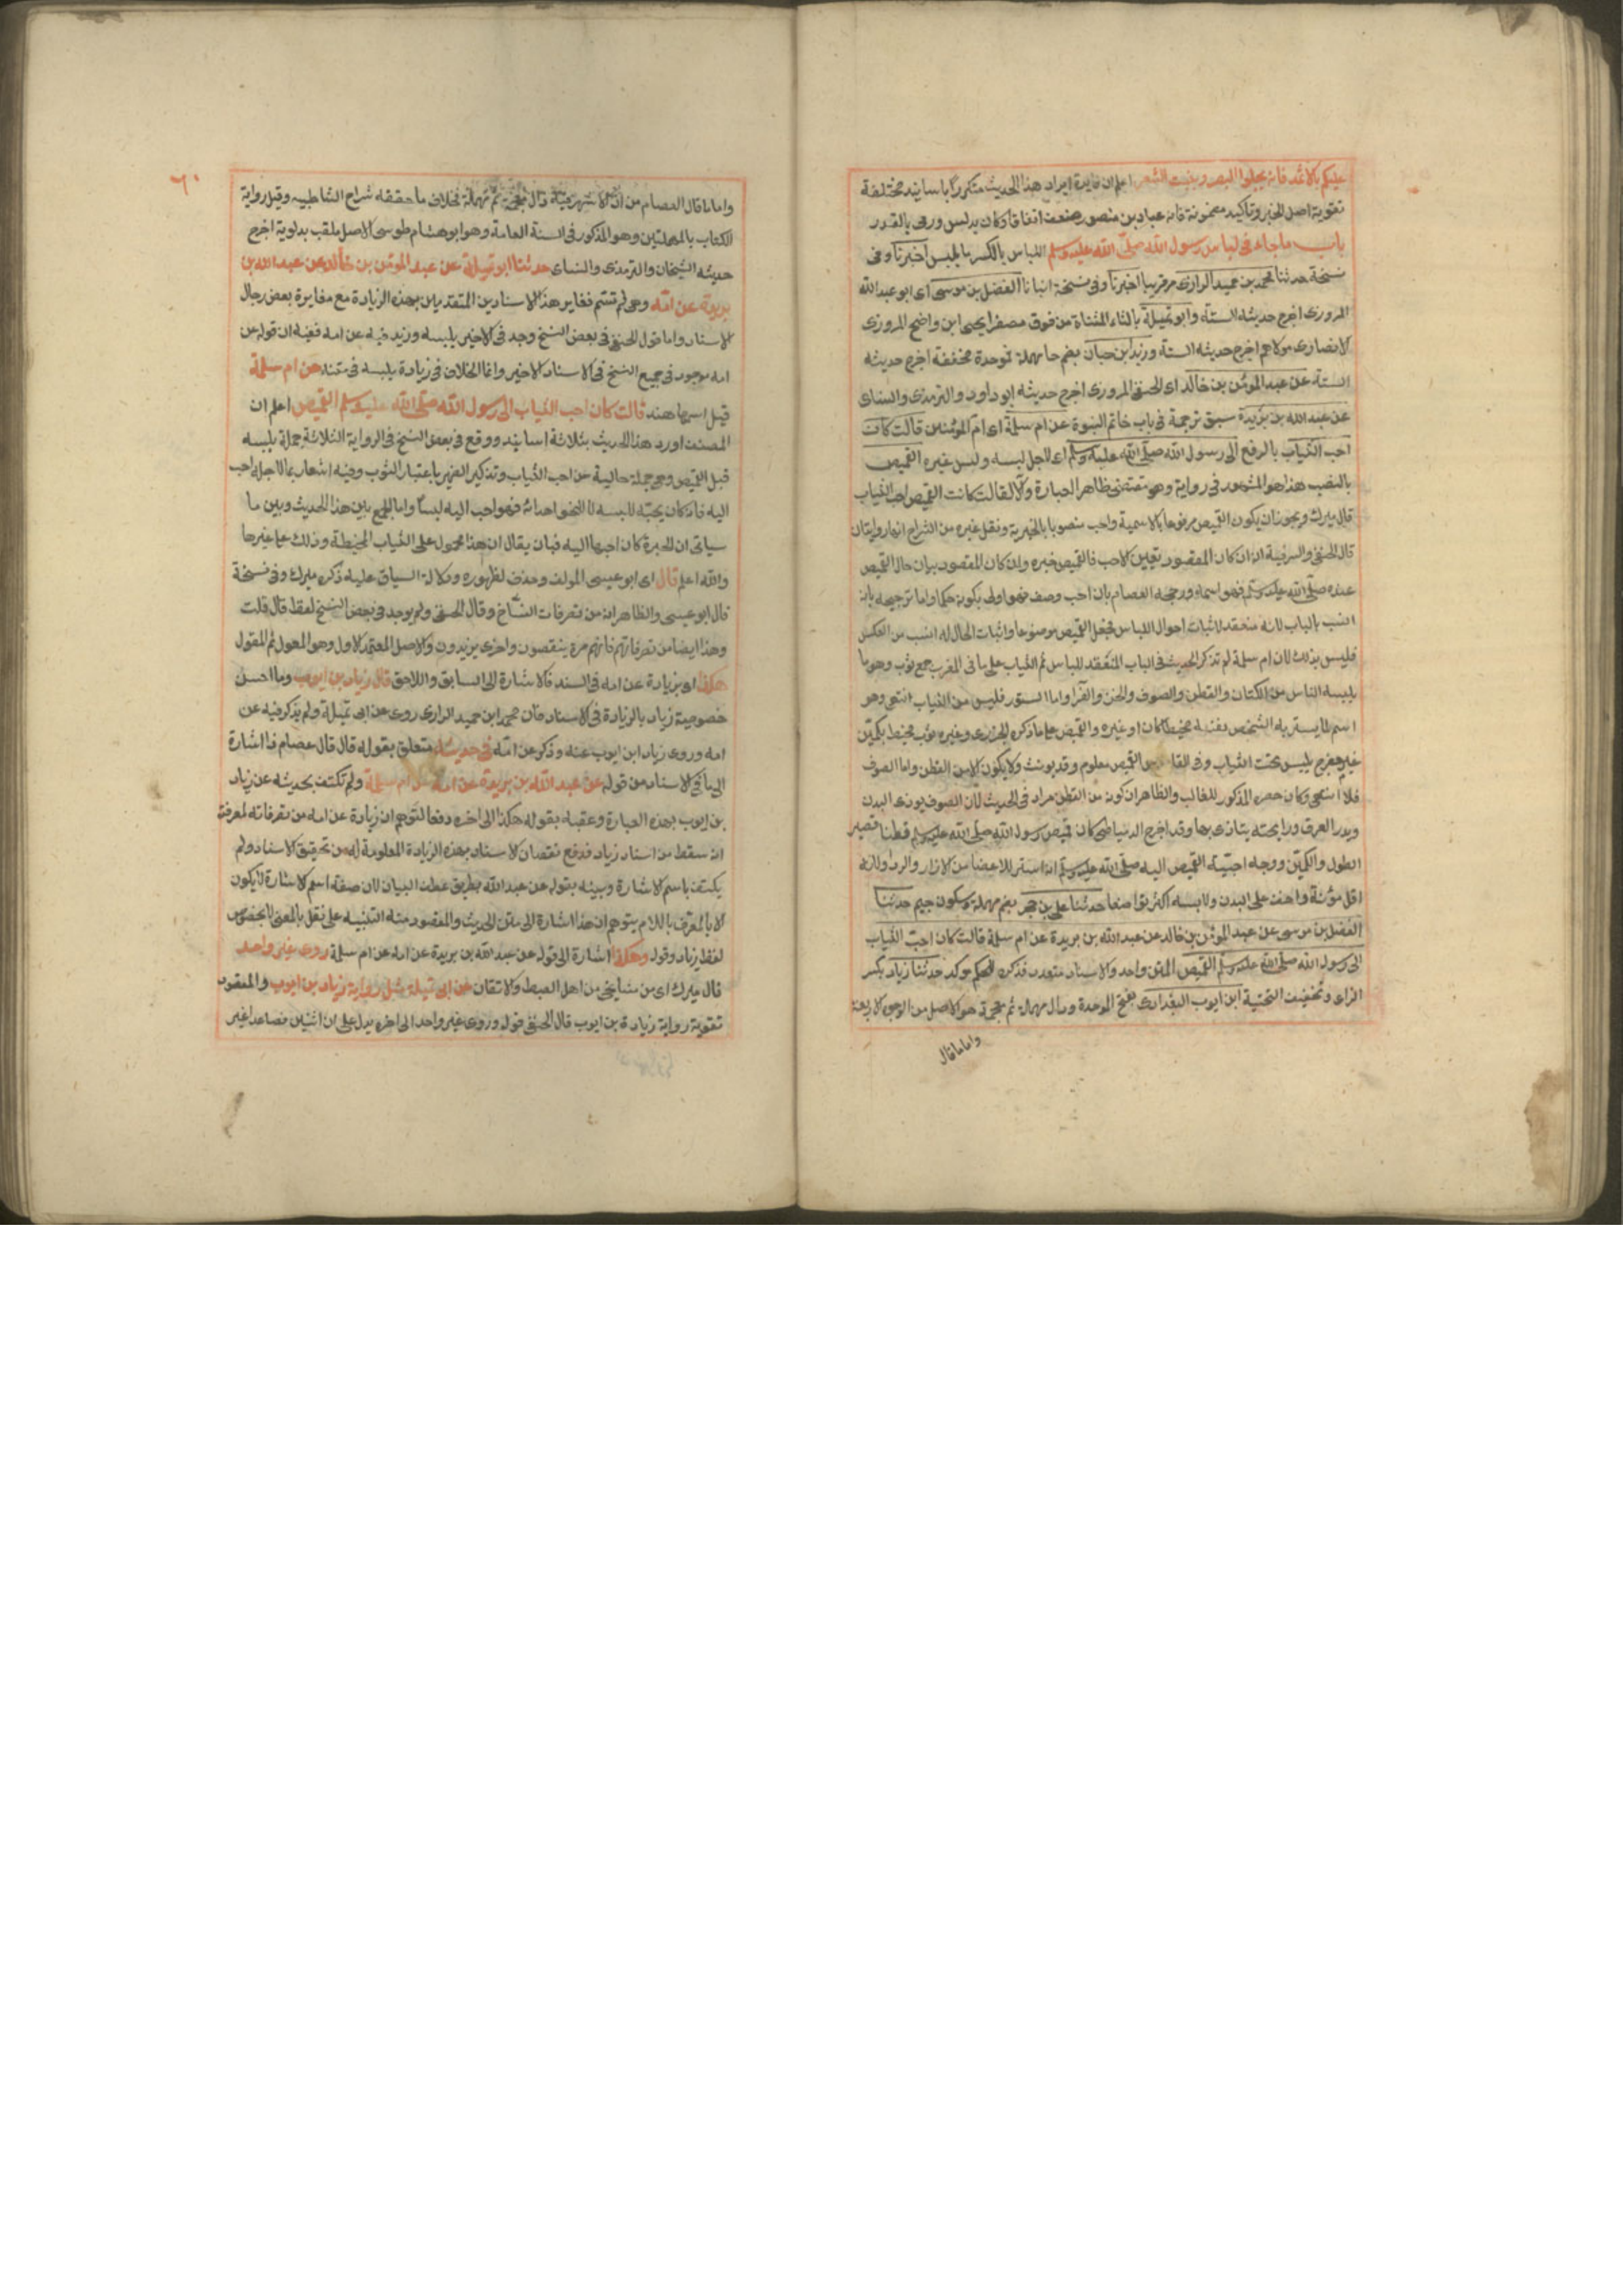 عليكم بالاثمد فانه يجلوا البصر وينبت الشعر اعلم ان فايدة ايراد هذا الحديث متكررا باسانيد مختلفة
تقوية اصل الخبر وتاكيد مضمونه فان عباد بن منصور ضعف اتفاقا وكان يدلس ورمى بالقدر
باب ما جاء فى لباس رسول الله صلى الله عليه وسلم اللباس بالكسر ما يلبس اخبرنا وفى
نسخة حدثنا محمد بن حميد الرازى مر قريبا اخبرنا وفى نسخة انبانا الفضل بن موسى اى ابو عبد الله
المروزى اخرج حديثه الستة وابو تميلة بالتاء المثناة من فوق مصغرا يحيى ابن واضح المروزى
الانصارى مولاهم اخرج حديثه الستة وزيد ابن حباب بضم حا مهملة فموحدة مخففة اخرج حديثه
الستة عن عبد المومن بن خالد اى الحنفى المروزى اخرج حديثه ابو داود والترمذى والنساى
عن عبد الله بن بريدة سبق ترجمة فى باب خاتم النبوة عن ام سلمة اى ام المومنين قالت كان
احب الثياب بالرفع الى رسول الله صلى الله عليه وسلم اى لاجل لبسه وليس غيره القميص
بالنصب هذا هو المشهور فى رواية وهو مقتضى ظاهر العبارة والا لقالت كانت القميص احب الثياب
قال ميرك ويجوز ان يكون القميص مرفوعا بالاسمية واحب منصوبا بالخبرية ونقل غيره من الشراح انهما روايتان
قال الحنفى والسر فيه انه ان كان المقصود تعيين الاحب فالقميص خبره وان كان المقصود بيان حال القميص
عنده صلى الله عليه وسلم فهو اسمه ورجحه العصام بان احب وصف فهو اولى بكونه حكما واما ترجيحه بانه
انسب بالباب لانه منعقد لاثبات احوال اللباس فجعل القميص موضوعا واثبات الحال له انسب من العكس
فليس بذلك لان ام سلمة لم تذكر الحديث فى الباب المنعقد للباس ثم الثياب على ما فى المغرب جمع ثوب وهو ما
يلبسه الناس من الكتان والقطن والصوف والخز والفرا واما الستور فليس من الثياب انتهى وهو
اسم لما يستر به الشخص نفسه مخيطا كان او غيره والقميص على ما ذكره الجزرى وغيره ثوب مخيط بكمين
غير مفرج يلبس تحت الثياب وفى القاموس القميص معلوم وقد يونث ولا يكون الا من القطن واما الصوف
فلا انتهى وكان حصره المذكور للغالب والظاهر ان كونه من القطن مراد فى الحديث لان الصوف يوذى البدن
ويدر العرق ورايحته يتاذى بها وقد اخرج الدمياطى كان قميص رسول الله صلى الله عليه وسلم قطنا قصير
الطول والكمين ووجه احبية القميص اليه صلى الله عليه وسلم انه استر للاعضا من الازار والردا ولانه
اقل مؤنة واخف على البدن ولابسه اكثر تواضعا حدثنا على بن حجر بضم مهملة وسكون جيم حدثنا
الفضل بن موسى عن عبد المومن بن خالد عن عبد الله بن بريدة عن ام سلمة قالت كان احب الثياب
الى رسول الله صلى الله عليه وسلم القميص المتن واحد والاسناد متعدد فذكره للحكم موكد حدثنا زياد بكسر
الزاى وتخفيف التحتية ابن ايوب البغدادى بفتح الموحدة ودال مهملة ثم معجمة هو الاصل من الوجوه الاربعة
واما ما قال
٦٠
واما ما قال العصام من ان الاشهر فيه دال معجمة ثم مهملة فخلاف ما حققه شراح الشاطبيه وقيل رواية
الكتاب بالمهملتين وهو المذكور فى السنة العامة وهو ابو هشام طوسى الاصل ملقب بدلوية اخرج
حديثه الشيخان والترمذى والنساى حدثنا ابو تميلة عن عبد المومن بن خالد عن عبد الله بن
بريدة عن امه وهى لم تسم فغاير هذا الاسنادين المتقدمين بهذه الزيادة مع مغايرة بعض رجال
الاسناد واما قول الحنفى فى بعض النسخ وجد فى الاخير يلبسه وزيد فيه عن امه ففيه ان قوله عن
امه موجود فى جميع النسخ فى الاسناد الاخير وانما الخلاف فى زيادة يلبسه فى متنه عن ام سلمة
قيل اسمها هند قالت كان احب الثياب الى رسول الله صلى الله عليه وسلم القميص اعلم ان
المصنف اورد هذا الحديث بثلاثة اسانيد ووقع فى بعض النسخ فى الرواية الثلاثة جملة يلبسه
قبل القميص وهى جملة حالية من احب الثياب وتذكير الضمير باعتبار الثوب وفيه اشعار بما لاجله احب
اليه فانه كان يحبه للبسه لا لنحو اهدائه فهو احب اليه لبسا واما الجمع بين هذا الحديث وبين ما
سياتى ان الحبرة كان احبها اليه فبان يقال ان هذا محمول على الثياب المخيطة وذلك على غيرها
والله اعلم قال اى ابو عيسى المولف وحذف لظهوره ودلالة السياق عليه ذكره ميرك وفى نسخة
قال ابو عيسى والظاهر انه من تصرفات النساخ وقال الحنفى ولم يوجد فى بعض النسخ لفظ قال قلت
وهذا ايضا من تصرفاتهم فانهم مرة ينقصون واخرى يزيدون والاصل المعتمد الاول وهو المعول ثم المقول
هكذا اى بزيادة عن امه فى السند فالاشارة الى السابق واللاحق قال زياد بن ايوب وما احسن
خصوصية زياد بالزيادة فى الاسناد فان محمد ابن حميد الرازى روى عن ابى تميلة ولم يذكر فيه عن
امه وروى زياد ابن ايوب عنه وذكر عن امه فى حديثه متعلق بقوله قال قال عصام فالاشارة
الى ما فى الاسناد من قوله عن عبد الله بن بريدة عن امه عن ام سلمة ولم تكتف بحديثه عن زياد
بن ايوب بهذه العبارة وعقبه بقوله هكذا الى اخره دفعا لتوهم ان زيادة عن امه من تصرفاته لمعرفته
انه سقط من اسناد زياد فدفع نقصان الاسناد بهذه الزيادة المعلومة له من تحقيق الاسناد ولم
يكتف باسم الاشارة وبينه بقوله عن عبد الله بطريق عطف البيان لان صفة اسم الاشارة لا يكون
الا بالمعرف باللام يتوهم ان هذا اشارة الى متن الحديث والمقصود منه التنبيه على نقل بالمعنى لا بخصوص
لفظ زياد وقوله وهكذا اشارة الى قوله عن عبد الله بن بريدة عن امه عن ام سلمة روى غير واحد
قال ميرك اى من مشايخى من اهل الضبط والاتقان عن ابى تميلة مثل رواية زياد بن ايوب والمقصود
تقوية رواية زيادة بن ايوب قال الحنفى قوله وروى غير واحد الى اخره يدل على ان اثنين فصاعدا غير